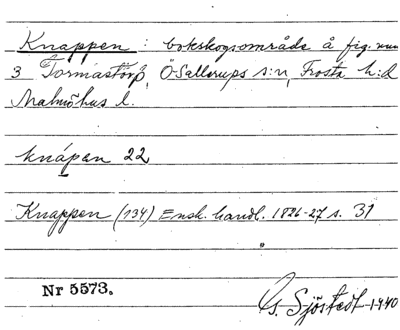 Knappen : bokskogsområde å fig. num
3 Tormastorp, Ö Sallerups s:n, Frosta h:d
Malmöhus l.
knápen 22
Knappen (134) Ensk. handl. 1826-27 s. 31
Nr 5573.
Gs. Sjöstedt 1940